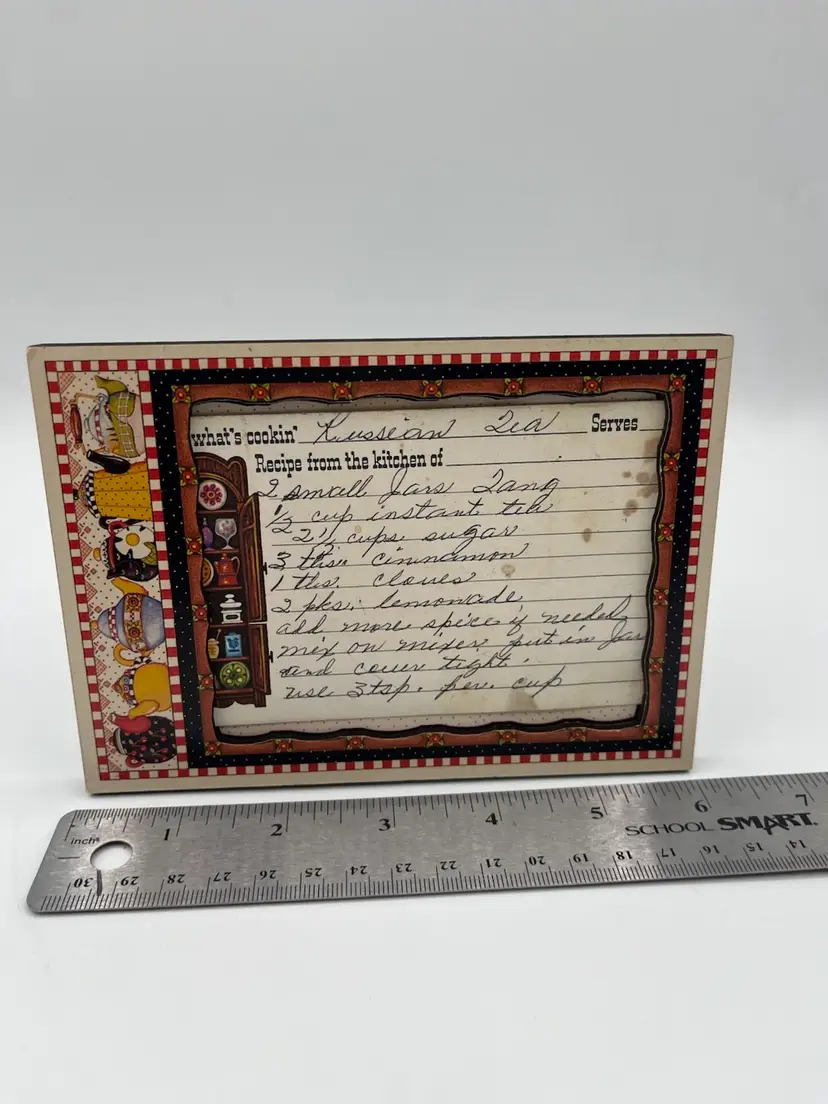 what's cookin' Russian Tea Serves
Recipe from the kitchen of
2 small Jars Tang
1/2 cup instant tea
2 1/2 cups sugar
3 tbs. cinnamon
1 tbs. cloves
2 pks. lemonade
add more spice if needed
mix on mixer put in Jar
and cover tight.
use 3 tsp. per. cup
inch 1 2 3 4 5 6 7
SCHOOL SMART.
30 29 28 27 26 25 24 23 22 21 20 19 18 17 16 15 14